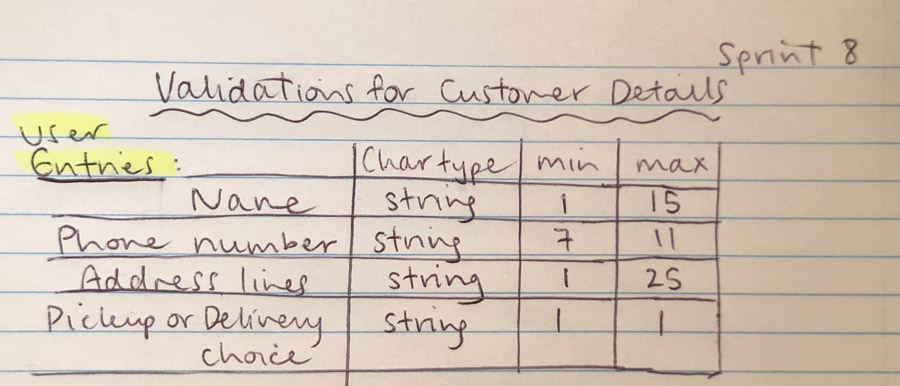 Sprint 8
Validations for Customer Details
User
Entries: Char type min max
Name string 1 15
Phone number string 7 11
Address lines string 1 25
Pickup or Delivery string 1 1
choice